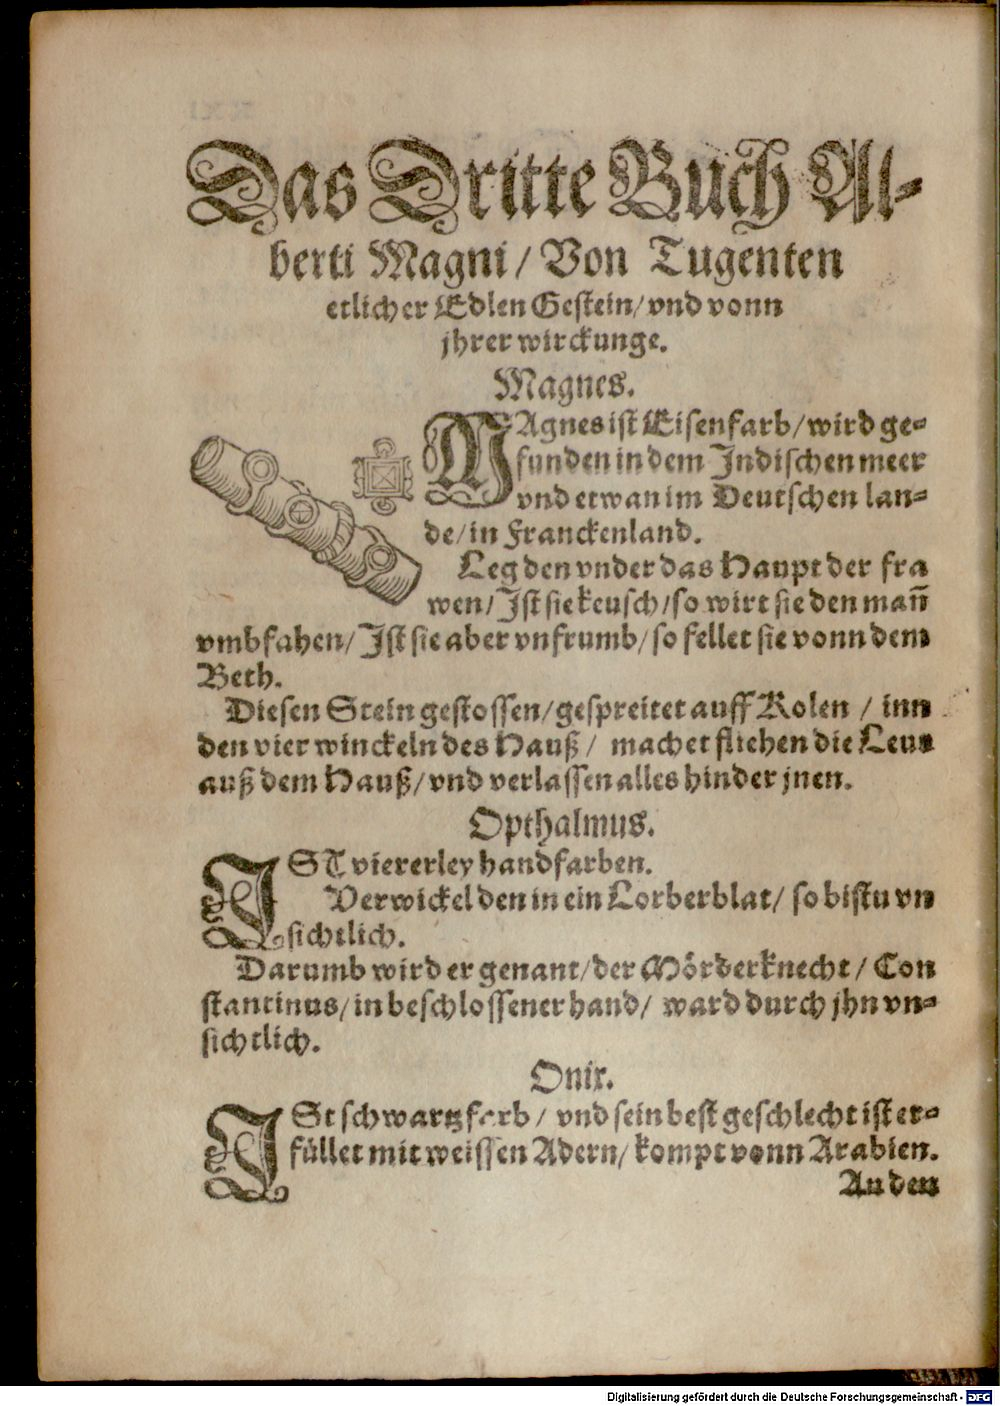 Das Dritte Buch Al-
berti Magni / Von Tugenten
etlicher Edlen Gestein / vnd vonn
jhrer wirckunge.
Magnes.
MAgnes ist Eisenfarb / wird ge-
funden in dem Indischen meer
vnd etwan im Deutschen lan-
de / in Franckenland.
Leg den vnder das Haupt der fra
wen / Ist sie keusch / so wirt sie den mañ
vmbfahen / Ist sie aber vnfrumb / so fellet sie vonn dem
Beth.
Diesen Stein gestossen / gespreitet auff Kolen / inn
den vier winckeln des Hauß / machet fliehen die Leut
auß dem Hauß / vnd verlassen alles hinder jnen.
Opthalmus.
IST viererley handfarben.
Verwickel den in ein Lorberblat / so bistu vn
sichtlich.
Darumb wird er genant / der Mörderknecht / Con
stantinus / in beschlossener hand / ward durch jhn vn-
sichtlich.
Onix.
ISt schwartzfarb / vnd sein best geschlecht ist er-
füllet mit weissen Adern / kompt vonn Arabien.
An den
Digitalisierung gefördert durch die Deutsche Forschungsgemeinschaft - DFG